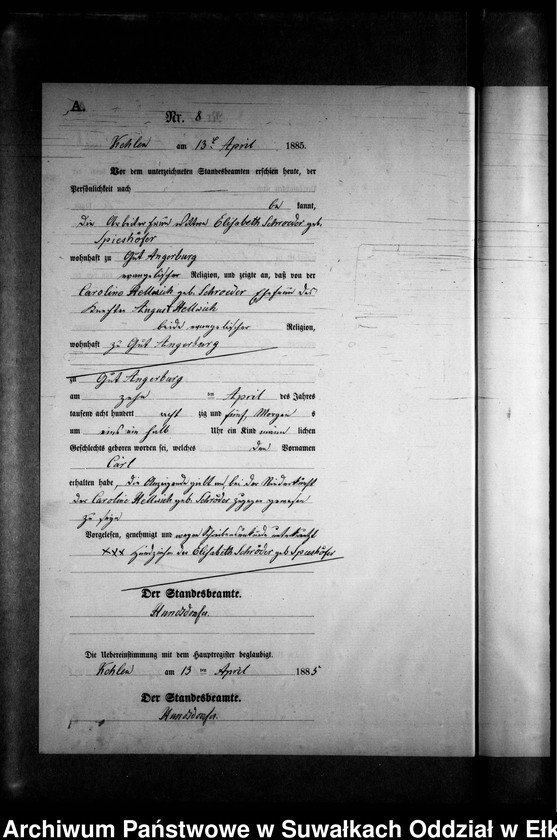 A.
Nr. 8
Kehlen am 13t April 1885.
Vor dem unterzeichneten Standesbeamten erschien heute, der
Persönlichkeit nach
be kannt,
die Arbeiterfrau Wittwe Elisabeth Schroeder geb.
Spieshöfer
wohnhaft zu Gut Angerburg
evangelischer Religion, und zeigte an, daß von der
Caroline Hellwich geb. Schroeder Ehefrau des
Knechts August Hellwich
beide evangelischer Religion,
wohnhaft zu Gut Angerburg
zu Gut Angerburg
am zehn ten April des Jahres
tausend acht hundert acht zig und fünf, Morgen s
um eins ein halb Uhr ein Kind männ lichen
Geschlechts geboren worden sei, welches den Vornamen
Carl
erhalten habe, die Anzeigende gibt an, bei der Niederkunft
der Caroline Hellwich geb. Schröder zugegen gewesen
zu sein
Vorgelesen, genehmigt und wegen Schreibensunkunde unterkreuzt
××× Handzeichen der Elisabeth Schröder geb. Spieshöfer
Der Standesbeamte.
Die Uebereinstimmung mit dem Hauptregister beglaubigt.
Kehlen am 13 ten April 1885
Der Standesbeamte.
Archiwum Państwowe w Suwałkach Oddział w Ełk